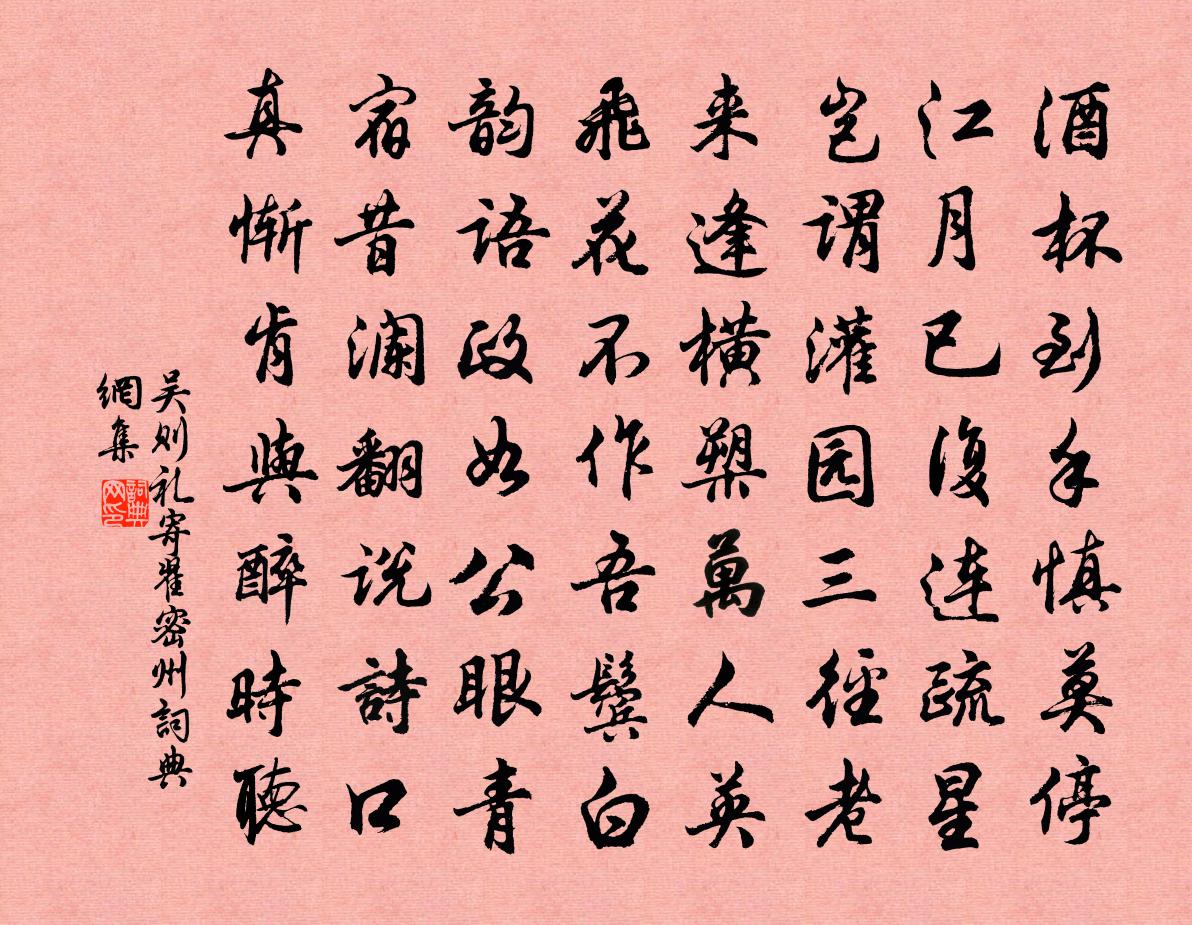 酒杯到手慎莫停
江月已復连疏星
岂谓灌园三径老
来逢横槊萬人英
飛花不作吾鬓白
韵语政如公眼青
宿昔澜翻说詩口
真惭肯與醉時聽
吴则礼寄翟密州詞典
網集
詞典网印